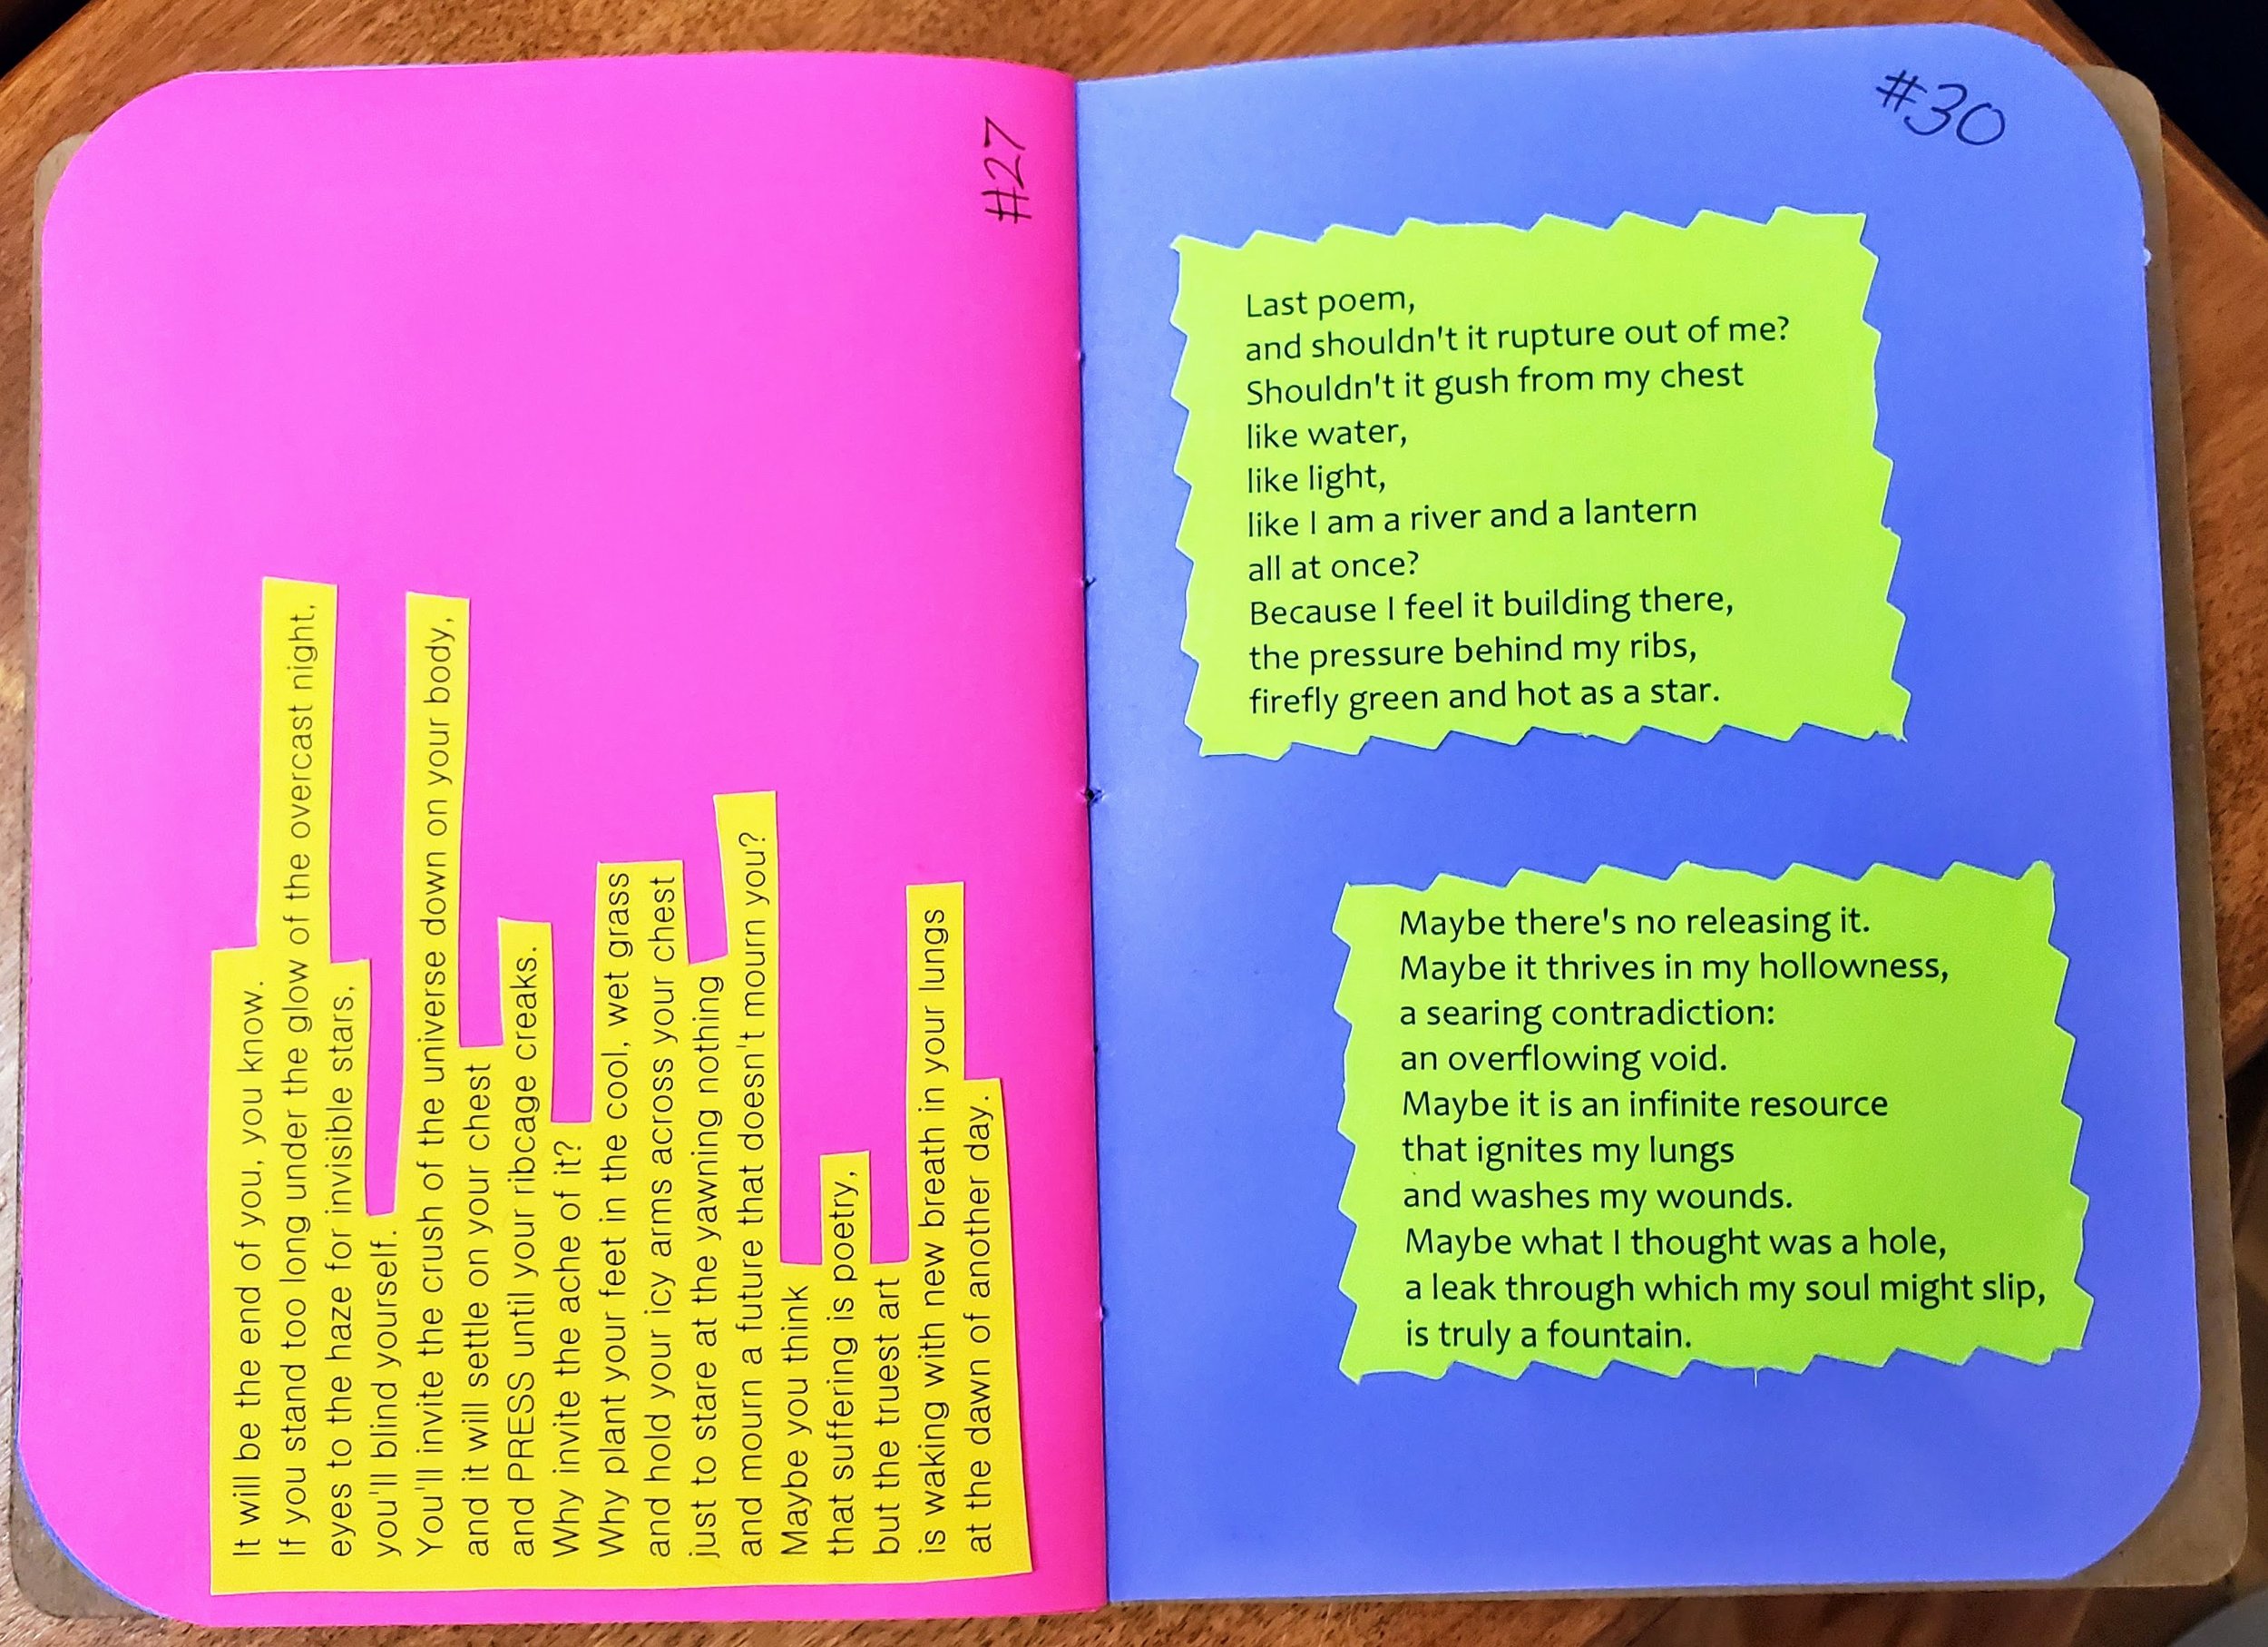 #27
It will be the end of you, you know.
If you stand too long under the glow of the overcast night,
eyes to the haze for invisible stars,
you'll blind yourself.
You'll invite the crush of the universe down on your body,
and it will settle on your chest
and PRESS until your ribcage creaks.
Why invite the ache of it?
Why plant your feet in the cool, wet grass
and hold your icy arms across your chest
just to stare at the yawning nothing
and mourn a future that doesn't mourn you?
Maybe you think
that suffering is poetry,
but the truest art
is waking with new breath in your lungs
at the dawn of another day.
#30
Last poem,
and shouldn't it rupture out of me?
Shouldn't it gush from my chest
like water,
like light,
like I am a river and a lantern
all at once?
Because I feel it building there,
the pressure behind my ribs,
firefly green and hot as a star.
Maybe there's no releasing it.
Maybe it thrives in my hollowness,
a searing contradiction:
an overflowing void.
Maybe it is an infinite resource
that ignites my lungs
and washes my wounds.
Maybe what I thought was a hole,
a leak through which my soul might slip,
is truly a fountain.